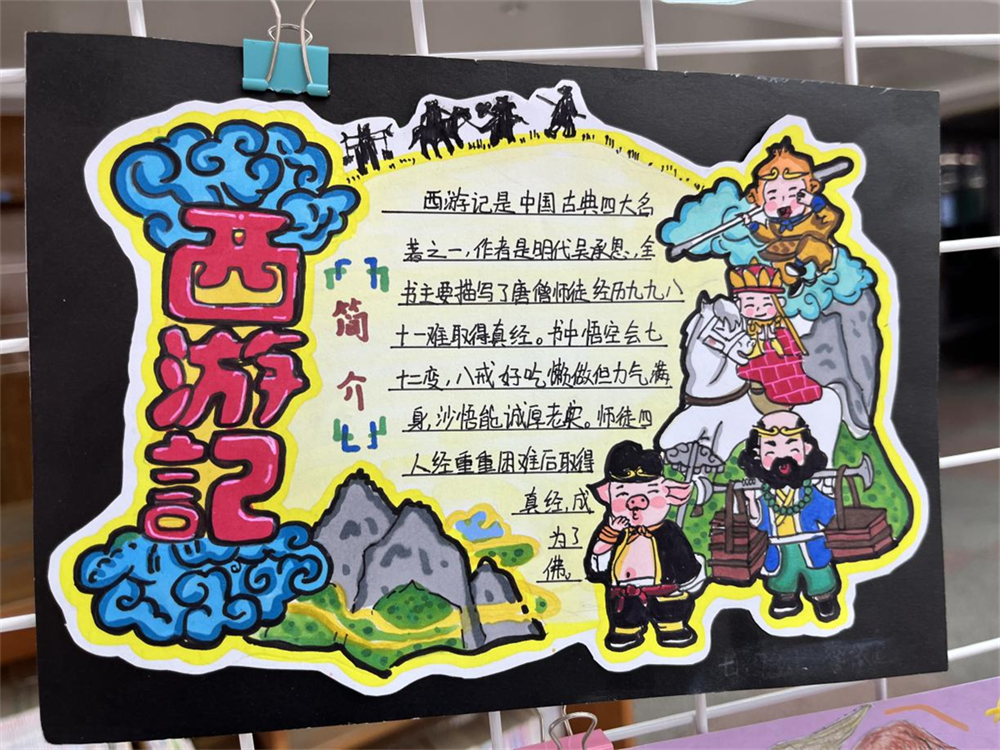 西游記
简介
西游记是中国古典四大名
著之一，作者是明代吴承恩，全
书主要描写了唐僧师徒经历九九八
十一难取得真经。书中悟空会七
十二变，八戒好吃懒做但力气满
身，沙悟能诚厚老实。师徒四
人经重重困难后取得
真经，成
为了
佛。